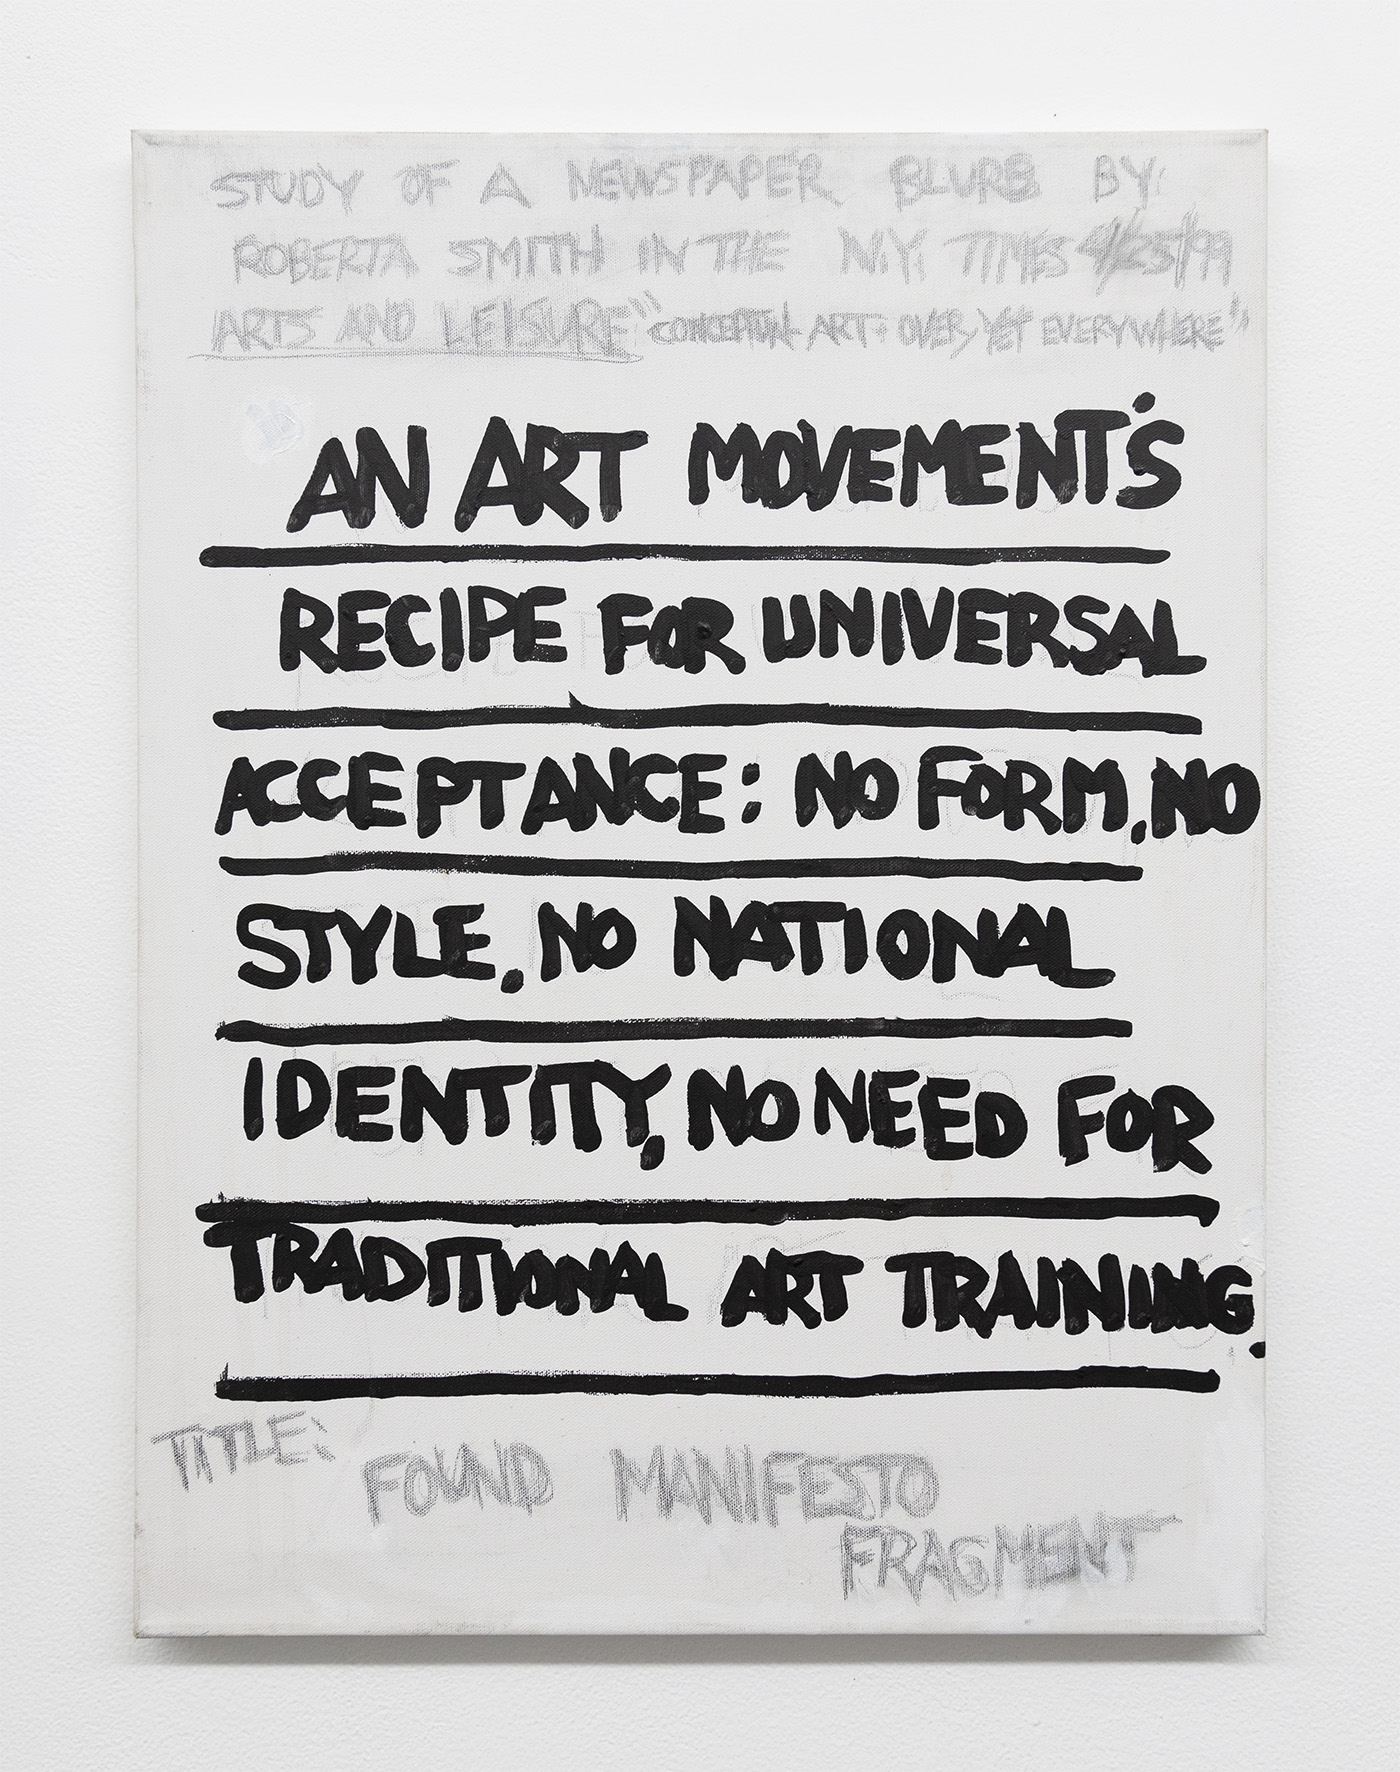 STUDY OF A NEWSPAPER BLURB BY:
ROBERTA SMITH IN THE N.Y. TIMES 4/25/99
ARTS AND LEISURE "CONCEPTUAL ART: OVER, YET EVERYWHERE"
AN ART MOVEMENT'S
RECIPE FOR UNIVERSAL
ACCEPTANCE: NO FORM, NO
STYLE, NO NATIONAL
IDENTITY, NO NEED FOR
TRADITIONAL ART TRAINING.
TITLE:
FOUND MANIFESTO
FRAGMENT